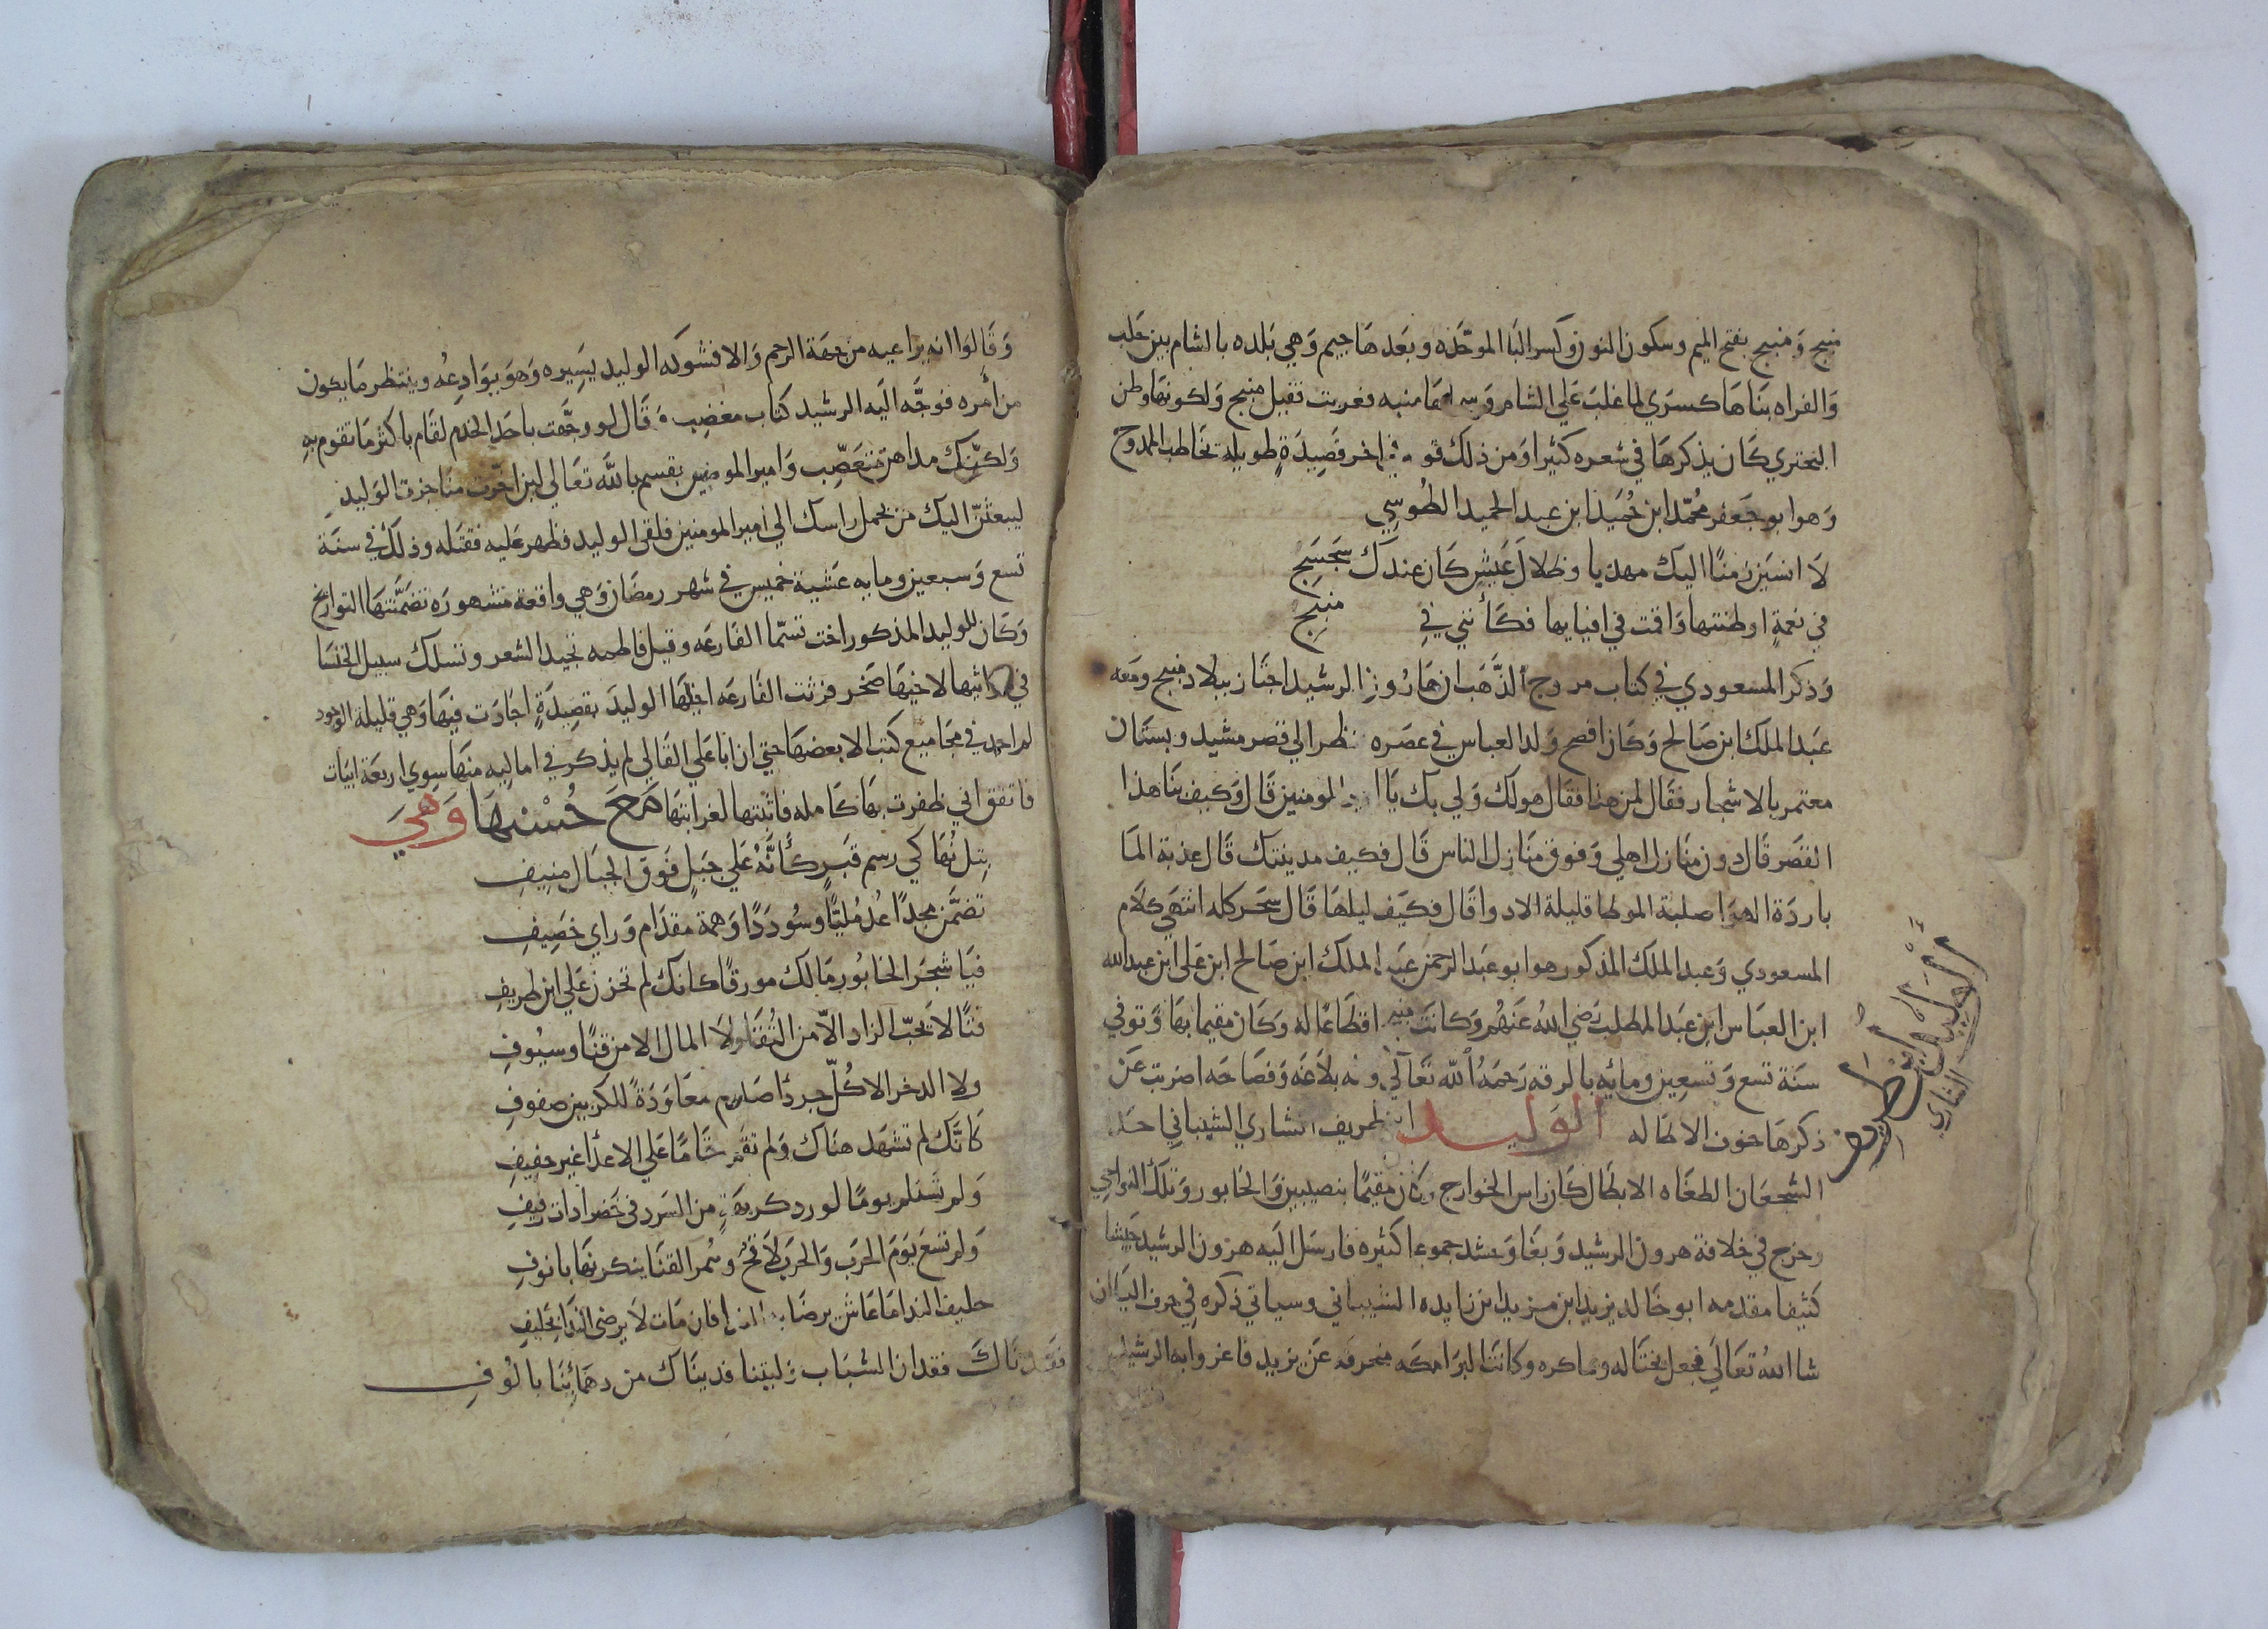 منبج وَمنبج بفتح الميم وسكون النون وَكسر البَا الموحَّده وبعَدهَا جيم وَهي بَلده بالشام بين حَلب
وَالفراه بنَاهَا كسرَي لما غلبَ عَلي الشام وَسماهَا منبه فعربت فقيل منبج وَلكونهَا وطن
البحتري كَان يذكرهَا في شعره كثيرا وَمن ذلك قو في اخر قَصِيدَةٍ طويله يخاطب الممدوح
وَهوابو جَعفر محُمّد ابن حُميَد ابن عبد الحميد الطُوسِي
لَا انسَيَن زمنًا اليك مهذبا وظلالَ عَيشٍ كَان عندكَ سَجسَجِ
في نعمةٍ اوطنتها وَاقمت في افيايها فكَأننيِ في منبِجِ
وَذكر المسعودي في كتاب مروج الذَّهَب ان هَارُون الرشيد اجتَاز ببلاد منبج ومَعَه
عَبد الملك ابن صَالح وَكَان افصح وَلد العباس في عصَره نظر الي قصر مشيد وبستَان
معتمر بالاشجار فقَال لمن هذا فقَال هولك وَلي بك يَا امير المومنين قَال وَكيف بنَا هذا
القصَر قَال دون منَازل اهلي وَفوق منَازل الناس قَال فكيف مدينتك قَال عذبة المَا
باردَة الهوَا صلبة الموطا قليلة الادوا قَال فكيَف ليلهَا قَال سحَر كله انتهَي كلَام
المسعودي وَعبد الملك المذكور هوابو عبَد الرحمن عَبد الملك ابن صَالح ابن عَلي ابن عبد الله
ابن العبَاس ابن عبَد المطلب رَضي اللهُ عَنهُم وَكانت منبج اقطَاعًا له وَكَان مقيما بهَا وَتوفي
سَنَة تسع وَتسعِين ومائيه بالرقه رَحمَهُ الله تعَالَي وله بلَاغَه وَفصَاحَه اضربت عَن
ذكرهَا خوف الاطَاله الوَليد ابن طريف الشاري الشيبَاني احَد
الشجعَان الطغَاه الابطَال كَان راس الخوارج وكَان مقيمًا بنصيبين وَالخَابور وَتلك النواحي
وخرج في خلافة هرون الرشيد وَبغَا وَحشد جموعا كثيره فارسَل اليَه هرون الرشيد جَيشا
كثيفا مقدمه ابو خَالد يزيد ابن مزيد ابن زايده الشيباني وسياتي ذكره في حرف اليَا ان
شا اللهُ تعَالَي فجعل يختَاله ويماكره وكانت البرَامكَه منحرفه عَن يزيد فاغروابه الرشيد
الوليد ابن طريف
الشاري
وَقَالوَا انه يرَاعيه من جهَة الرحم وَالا فشوكه الوليد يَسِيره وَهوَ يوَادعُه وينتظر مَا يكون
من أمَره فوجَّه اليَه الرشيد كتاب مغضِب قَال لو وجَّهت باحَد الخدم لقَام باكثر مَا تقوم به
وَلكنَّك مداهن متعَصِّب وَامير المومنين يقسم بالله تعَالي لين اخّرت منَاجزة الوَليد
ليبعثنّ اليك من يحمل راسك الي أمير المومنين فلقي الوليد فظهر عَليه فقتَله وذلكَ في سنَة
تسع وَسبعين ومايه عَشية خميس في شهر رمضَان وَهي واقعة مشهورَه تضمَّنتهَا التواريخ
وَكَان للوليد المذكور اخت تسمّا الفَارعَه وقيل فاطمه تجيد الشعر وتسلك سبيل الخنسَا
في مراثيها لاخيهَا صَخر فرثت الفَارعَه اخيهَا الوليدَ بقصِيدَةٍ اجَادَت فيهَا وَهي قليله الوجود
لم اجد في مجَاميع كتب الا بعضهَا حتي ان ابا عَلي القَالي لم يذكر في اماليه منهَا سِوي اربعَة ابيَات
فاتفق اني ظفرت بهَا كَامله فاثبتها لغرابتهَا مَعَ حُسْنِهَا وَهيَ
بتِل نُهَاكي رسم قبَرٍ كَأَنَّهُ عَلي جبَلٍ فوَق الجبَال منِيفِ
تضمَّن مجدًا عُدْمُليَّا وسُودَدًا وَهمة مقدَام وَراي حَصِيفِ
فيَا شجَرَ الخَابُور مَالك مورقًا كانك لم تحَزن عَلي ابن طريفِ
فتًا لَا يحُبّ الزاد الاّ من التُقَا ولَا المال الا من قنًا وسيُوفِ
ولا الدخر الا كُلّ جردَا صَلدم معَاوَدَةً للكر بين صفوفِ
كَانَّك لم تشهَد هنَاك وَلم تقم مقَامًا عَلي الاعدَا غير خفيفِ
وَلم تسَتلم يومًا لورد كريهَةٍ من السَرد في خَضرَا ذات رفيفِ
وَلم تسَعَ يوَم الحَرب وَالحَرب لَاقحُ وسُمر القنَا ينكرنهَا بانوفِ
حليف الندا مَا عَاش يرضَا به الندا فان مَات لَا يرضَي الندَا بحليفِ
فقدنَاكَ فقدان الشبَاب وَليتنا فديناك من دهمَائِنَا بالُوفِ